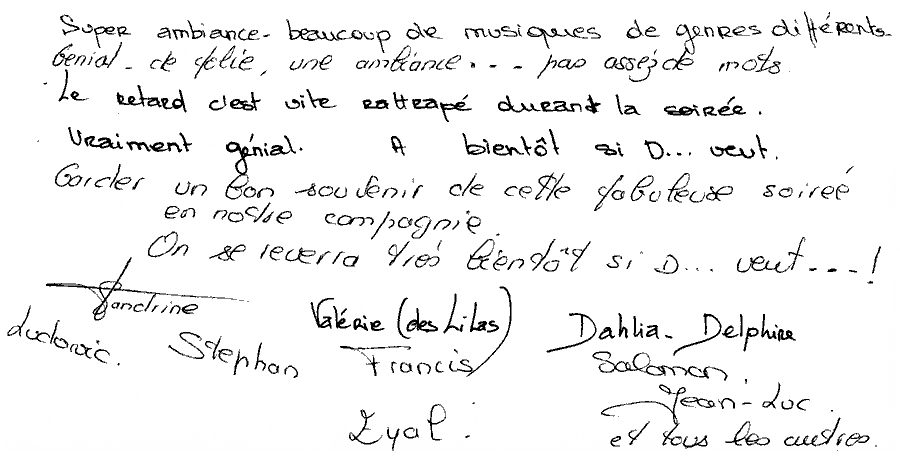 Super ambiance - beaucoup de musiques de genres différents -
Genial - de folie, une ambiance . - - pas assez de mots.
Le retard c'est vite rattrapé durant la soirée.
Vraiment génial. A bientôt si D... veut.
Garder un bon souvenir de cette fabuleuse soireé
en notre compagnie.
On se reverra très bientôt si D... veut - - - !
Sandrine
Ludovic. Stephan
Valérie (des Lilas)
Francis
Eyal.
Dahlia - Delphine
Salomon.
Jean-Luc.
et tous les autres.